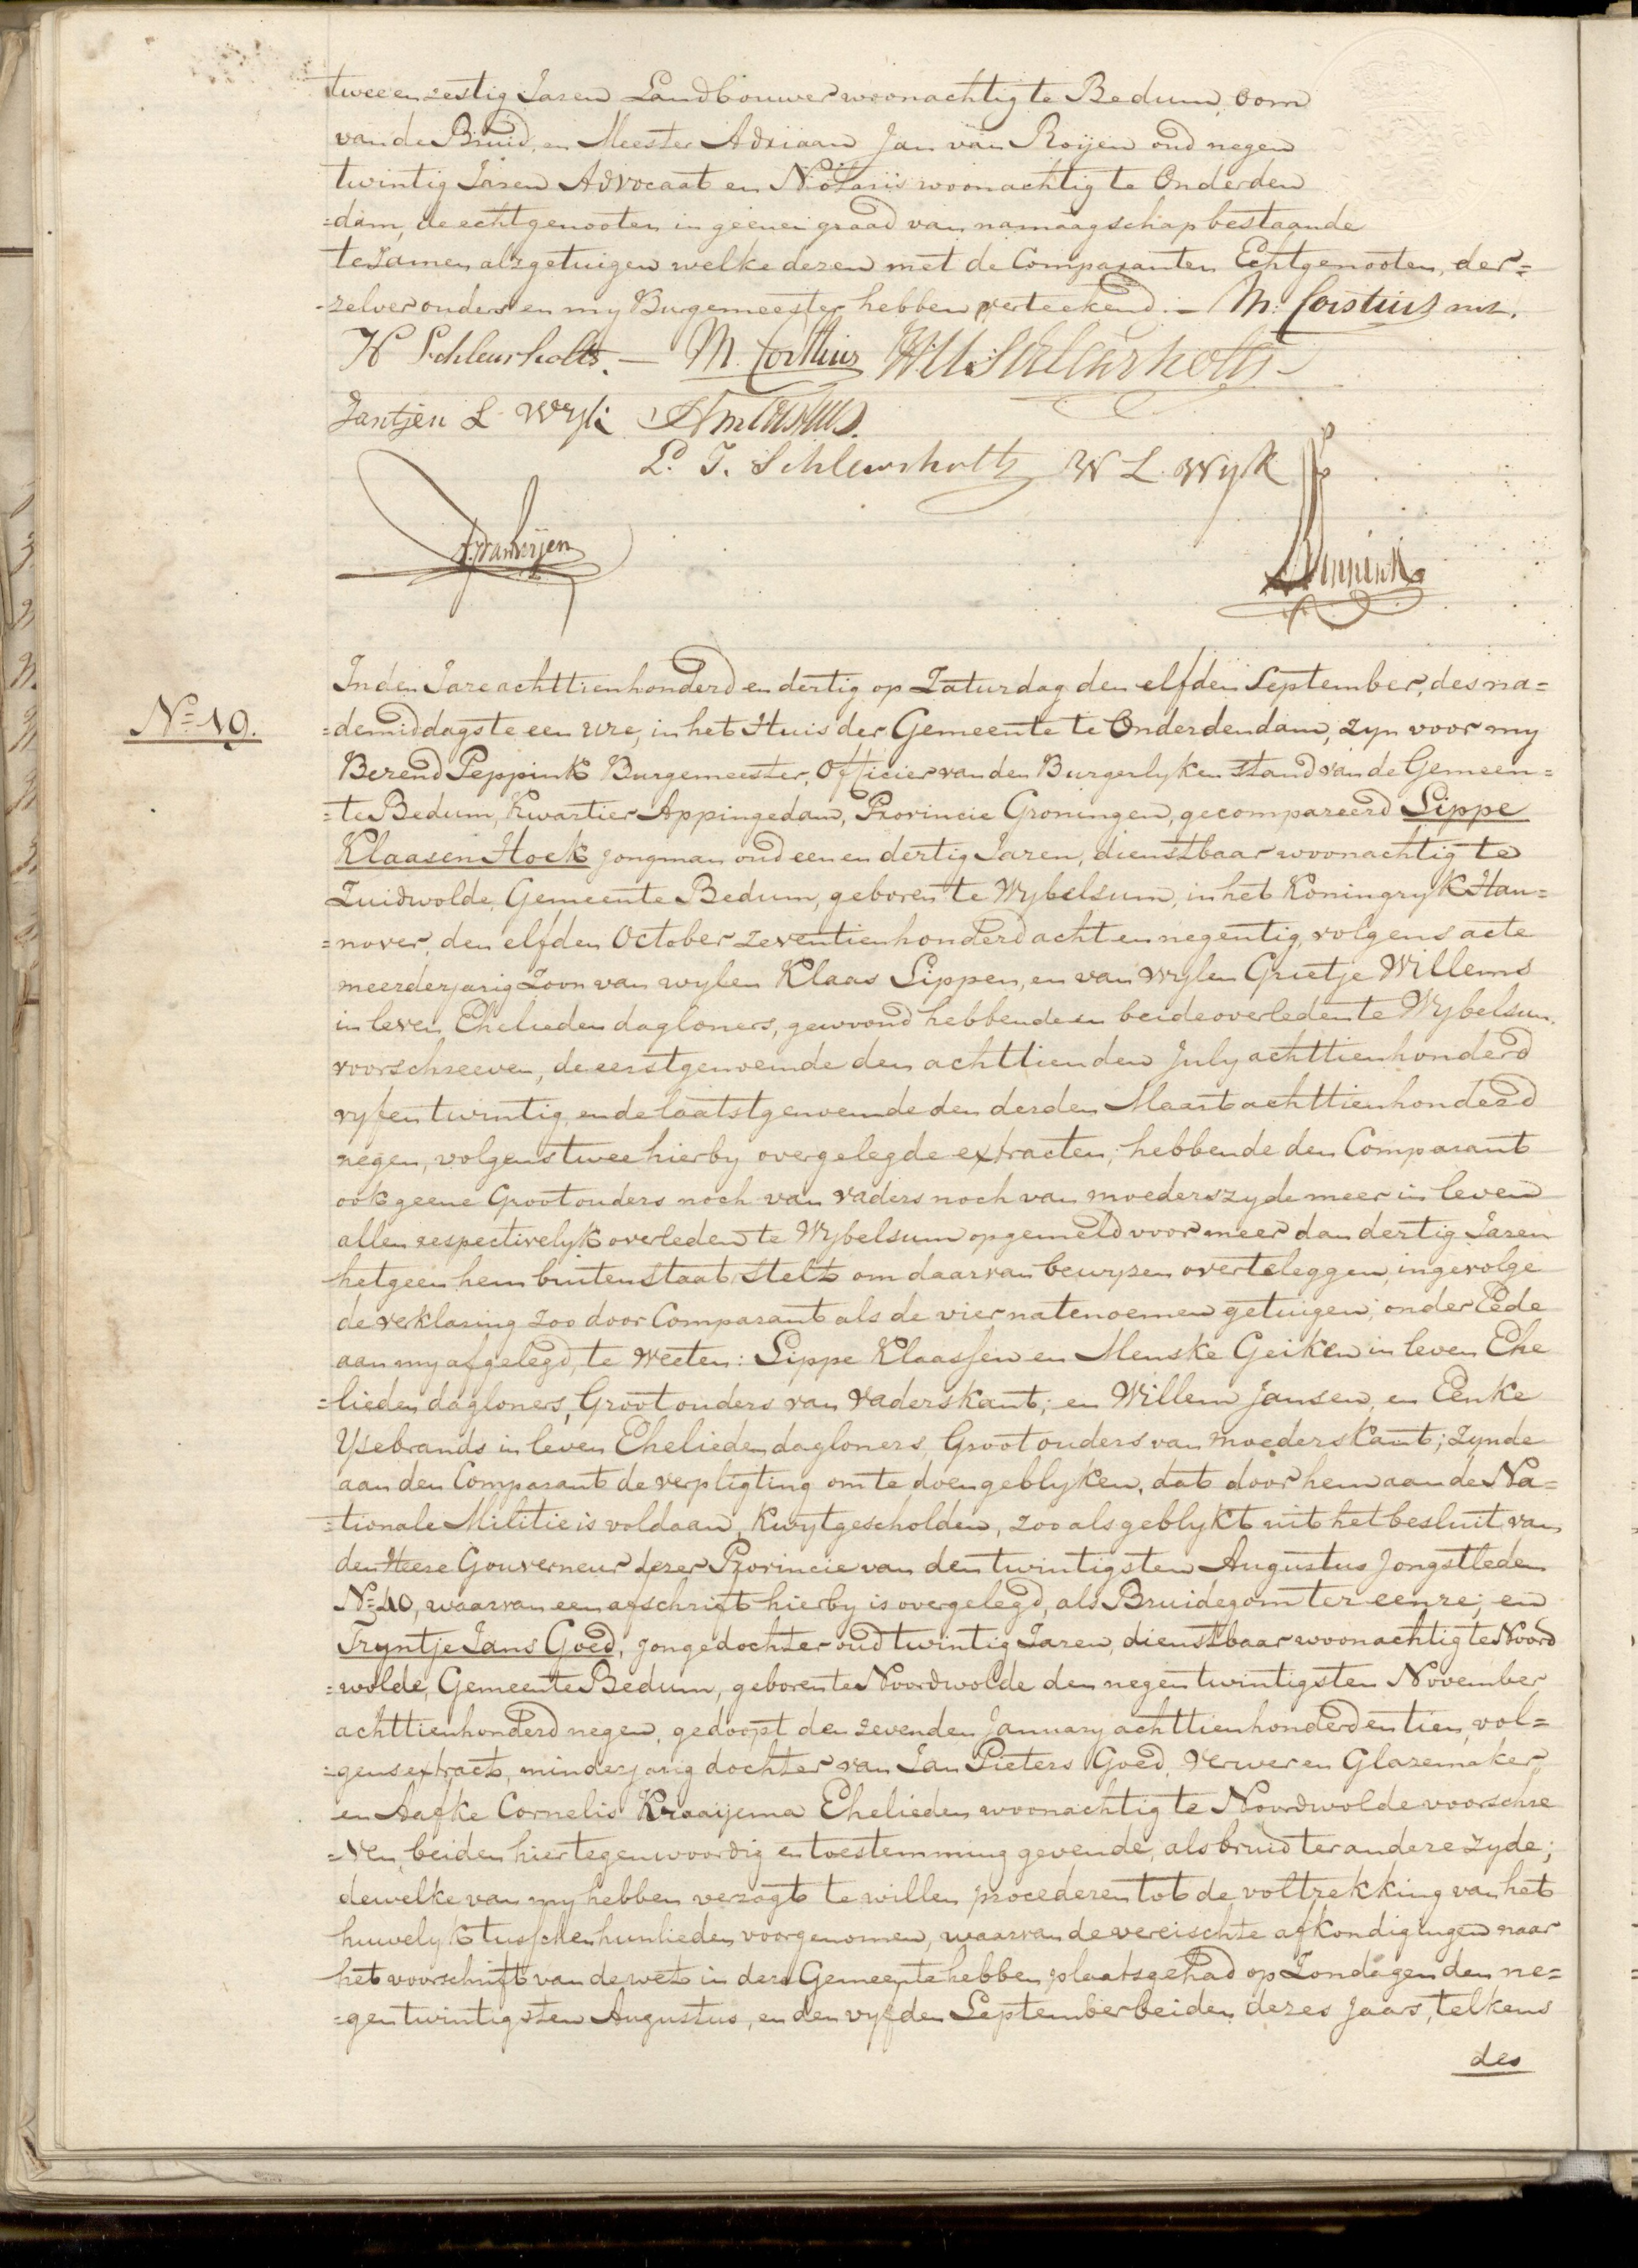 twee en zestig Jaren Landbouwer woonachtig te Bedum, Oom
van de Bruid, en Meester Adriaan Jan van Roijen oud negen
twintig Jaren Advocaat en Notaris woonachtig te Onderden
=dam, de echtgenooten in geenen graad van namaagschap bestaande
te zamen als getuigen welke dezen met de Comparanten Echtgenooten, der=
=zelver ouders en my Burgemeester hebben verteekend. — M. Corstius
H Schleurholts. — M. Corstius Schleurholts
Jantjen L Wyk
L. J. Schleurholts W L Wyk
A. J. van Roijen
Peppink
No. 19.
In den Jare achttienhonderd en dertig op Zaturdag den elfden September, des na=
=demiddags te een ure, in het Huis der Gemeente te Onderdendam, zyn voor my
Berend Peppink Burgemeester, Officier van den Burgerlyken stand van de Gemeen=
=te Bedum, Kwartier Appingedam, Provincie Groningen, gecompareerd Lippe
Klaasen Hoek jongman oud een en dertig Jaren, dienstbaar woonachtig te
Zuidwolde, Gemeente Bedum, geboren te Wybelsum, in het Koningryk Han=
=nover, den elfden October zeventienhonderd acht en negentig, volgens acte
meerderjarig Zoon van wylen Klaas Lippen, en van wylen Grietje Willems
in leven Ehelieden dagloners, gewoond hebbende en beide overleden te Wybelsum
voorschreeven, de eerstgenoemde den achttienden July achttienhonderd
vyfentwintig, en de laatstgenoemde den derden Maart achttienhonderd
negen, volgens twee hierby overgelegde extracten; hebbende den Comparant
ook geene Grootouders noch van vaders noch van moederszyde meer in leven
allen respectivelyk overleden te Wybelsum opgemeld voor meer dan dertig Jaren
hetgeen hem buiten staat stelt om daarvan bewyzen overteleggen, ingevolge
de verklaring zoo door Comparant als de vier natenoemen getuigen, onder Eede
aan my afgelegd, te weeten: Lippe Klaassen en Menske Geiken in leven Ehe
=lieden dagloners, Grootouders van vaderskant; en Willem Jansen, en Eenke
Ysebrands in leven Ehelieden dagloners, Grootouders van moederskant; zynde
aan den Comparant de verpligting om te doen geblyken, dat door hem aan de Na=
=tionale Militie is voldaan, kwytgescholden, zoo als geblykt uit het besluit van
den Heere Gouverneur dezer Provincie van den twintigsten Augustus jongstleden
No. 40, waarvan een afschrift hierby is overgelegd, als Bruidegom ter eenre; en
Tryntje Jans Goed, jongedochter oud twintig Jaren, dienstbaar woonachtig te Noord
=wolde, Gemeente Bedum, geboren te Noordwolde den negentwintigsten November
achttienhonderd negen, gedoopt den zevenden January achttienhonderd en tien, vol=
=gens extract, minderjarig dochter van Jan Pieters Goed, Verwer en Glazemaker
en Aafke Cornelis Kraaijema Ehelieden woonachtig te Noordwolde voorschre
=ven, beiden hier tegenwoordig en toestemming gevende, als bruid ter andere zyde;
dewelke van my hebben verzogt te willen procederen tot de voltrekking van het
huwelyk tusschen hunlieden voorgenomen, waarvan de vereischte afkondigingen naar
het voorschrift van de wet in deze Gemeente hebben plaatsgehad op Zondagen den ne=
=gentwintigsten Augustus, en den vyfden September beiden dezes Jaars, telkens
des